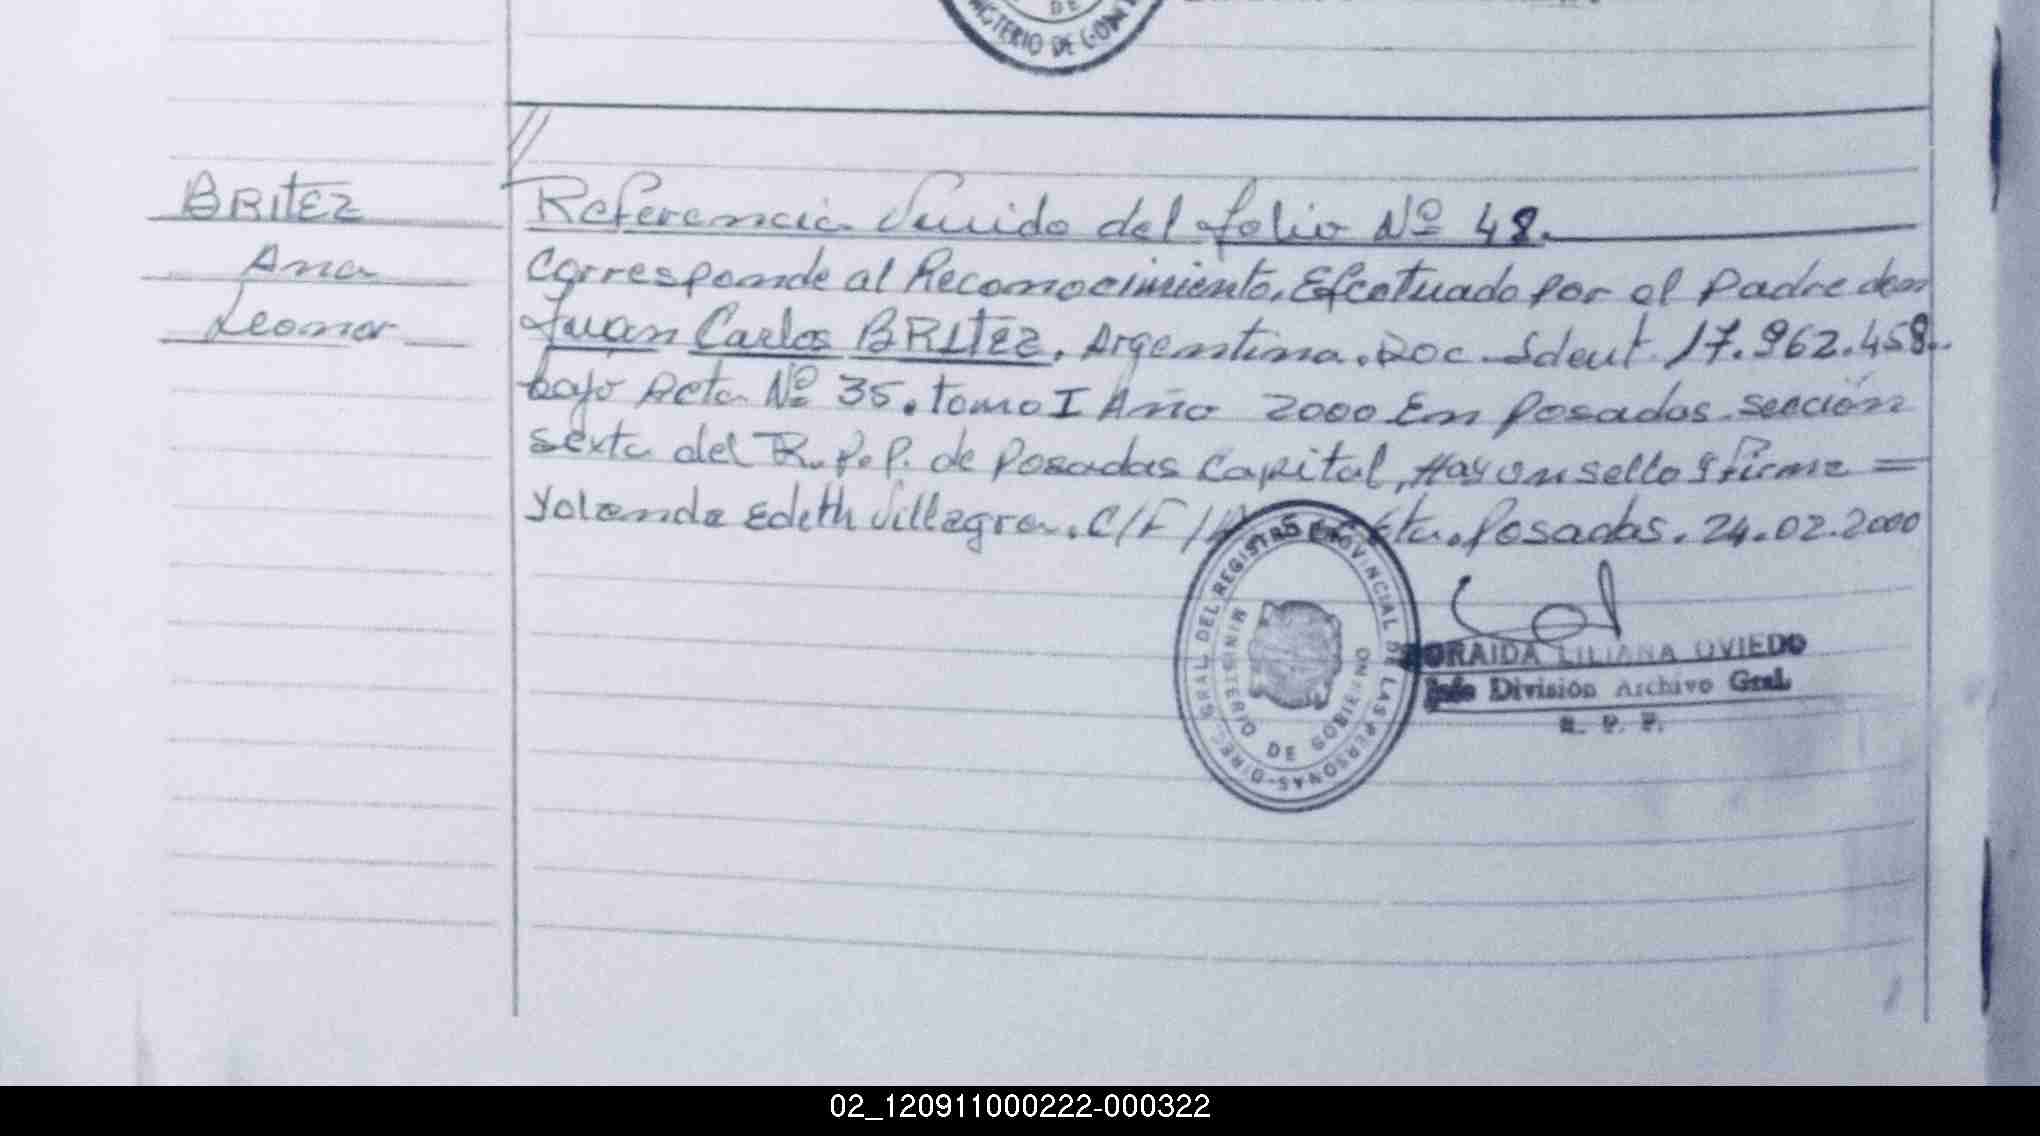 DE
MINISTERIO DE GOB
BRITEZ
Ana
Leonor
Referencia Venido del folio Nº 48.
Corresponde al Reconocimiento, Efectuado por el Padre don
Juan Carlos BRITEZ, Argentina. Doc. Ident 17.962.458.
bajo Acta Nº 35. tomo I Año 2000 En Posadas sección
sexta del R.P.P. de Posadas Capital, Hay un sello y firma =
Yolanda Edeth Villagra. C/F/ Posadas. 24.02.2000
DIREC. GRAL DEL REGISTRO PROVINCIAL DE LAS PERSONAS-
MINISTERIO DE GOBIERNO
ORAIDA LILIANA OVIEDO
Jefe División Archivo Gral.
R. P. P.
02_120911000222-000322